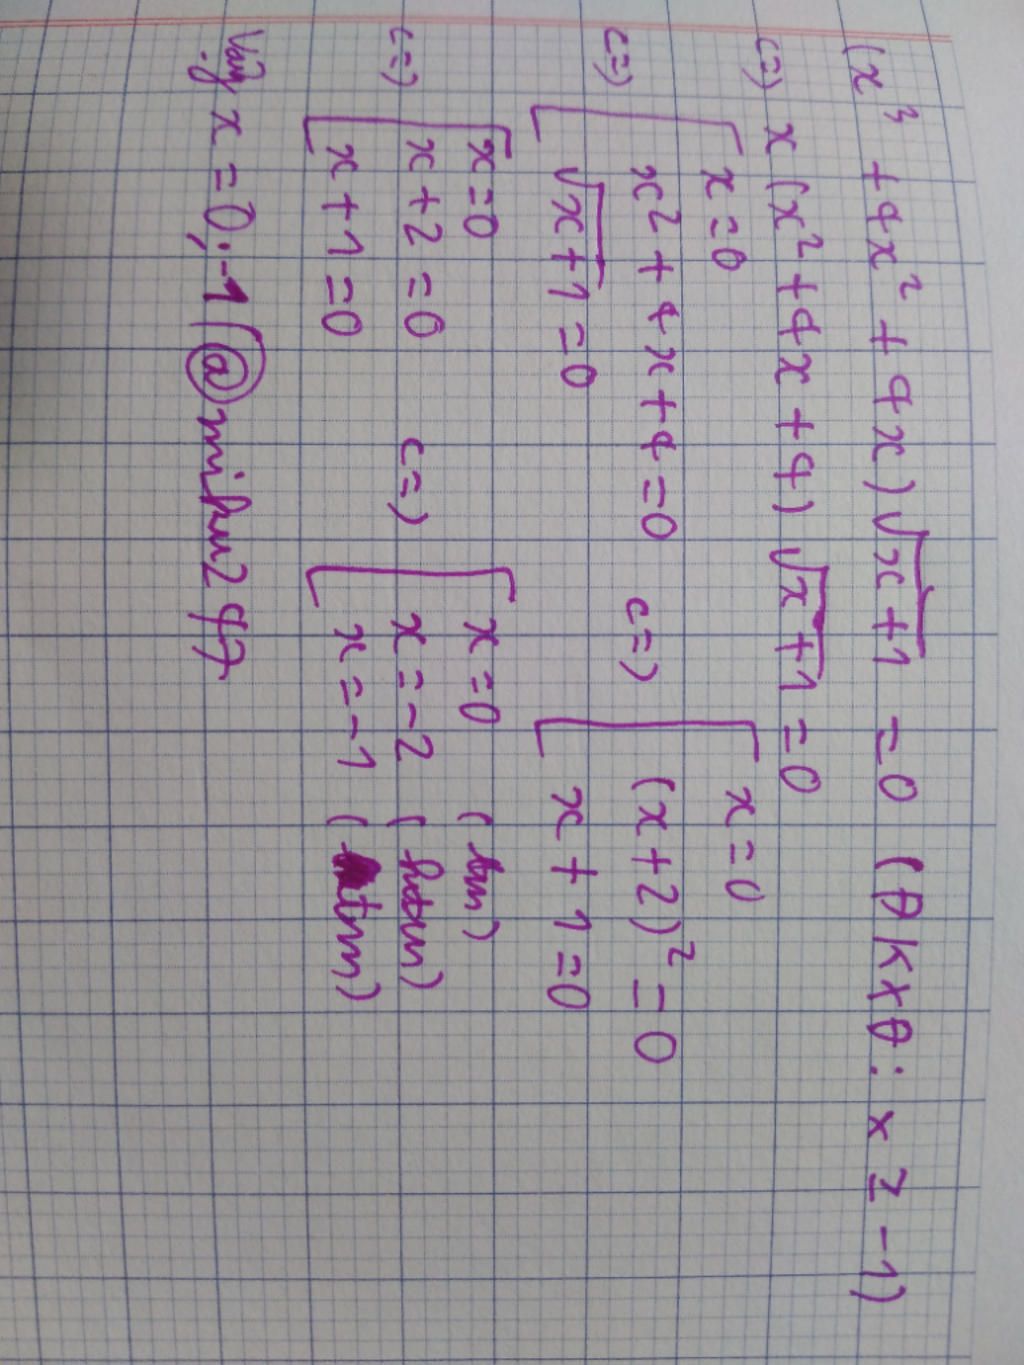 (x³ + 4x² + 4x) √x+1 = 0 (ĐKXĐ: x ≥ -1)
<=> x (x² + 4x + 4) √x+1 = 0
x = 0
<=> x² + 4x + 4 = 0
√x+1 = 0
<=> x = 0
(x+2)² = 0
x + 1 = 0
x = 0
<=> x + 2 = 0
x + 1 = 0
<=> x = 0 (tm)
x = -2 (ktm)
x = -1 (tm)
Vậy x = 0; -1 @mihu247